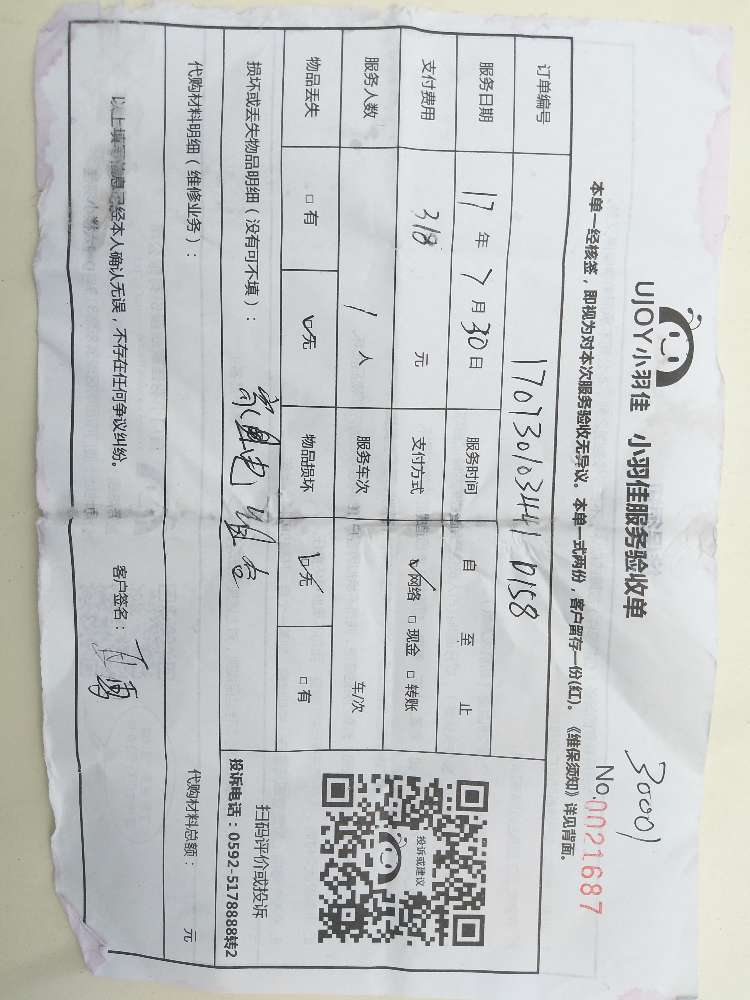 30001
UJOY小羽佳 小羽佳服务验收单
No.0021687
本单一经核签，即视为对本次服务验收无异议。本单一式两份，客户留存一份(红)。《维保须知》详见背面。
订单编号 170730103441 0158
服务日期 17年7月30日 服务时间 自 至 止
支付费用 318 元 支付方式 ☑网络 □现金 □转账
服务人数 1人 服务车次 车/次
物品丢失 □有 ☑无 物品损坏 ☑无 □有
投诉或建议
损坏或丢失物品明细（没有可不填）：
扫码评价或投诉
投诉电话：0592-5178888转2
代购材料明细（维修业务）：
代购材料总额： 元
以上填写信息已经本人确认无误，不存在任何争议纠纷。 客户签名：